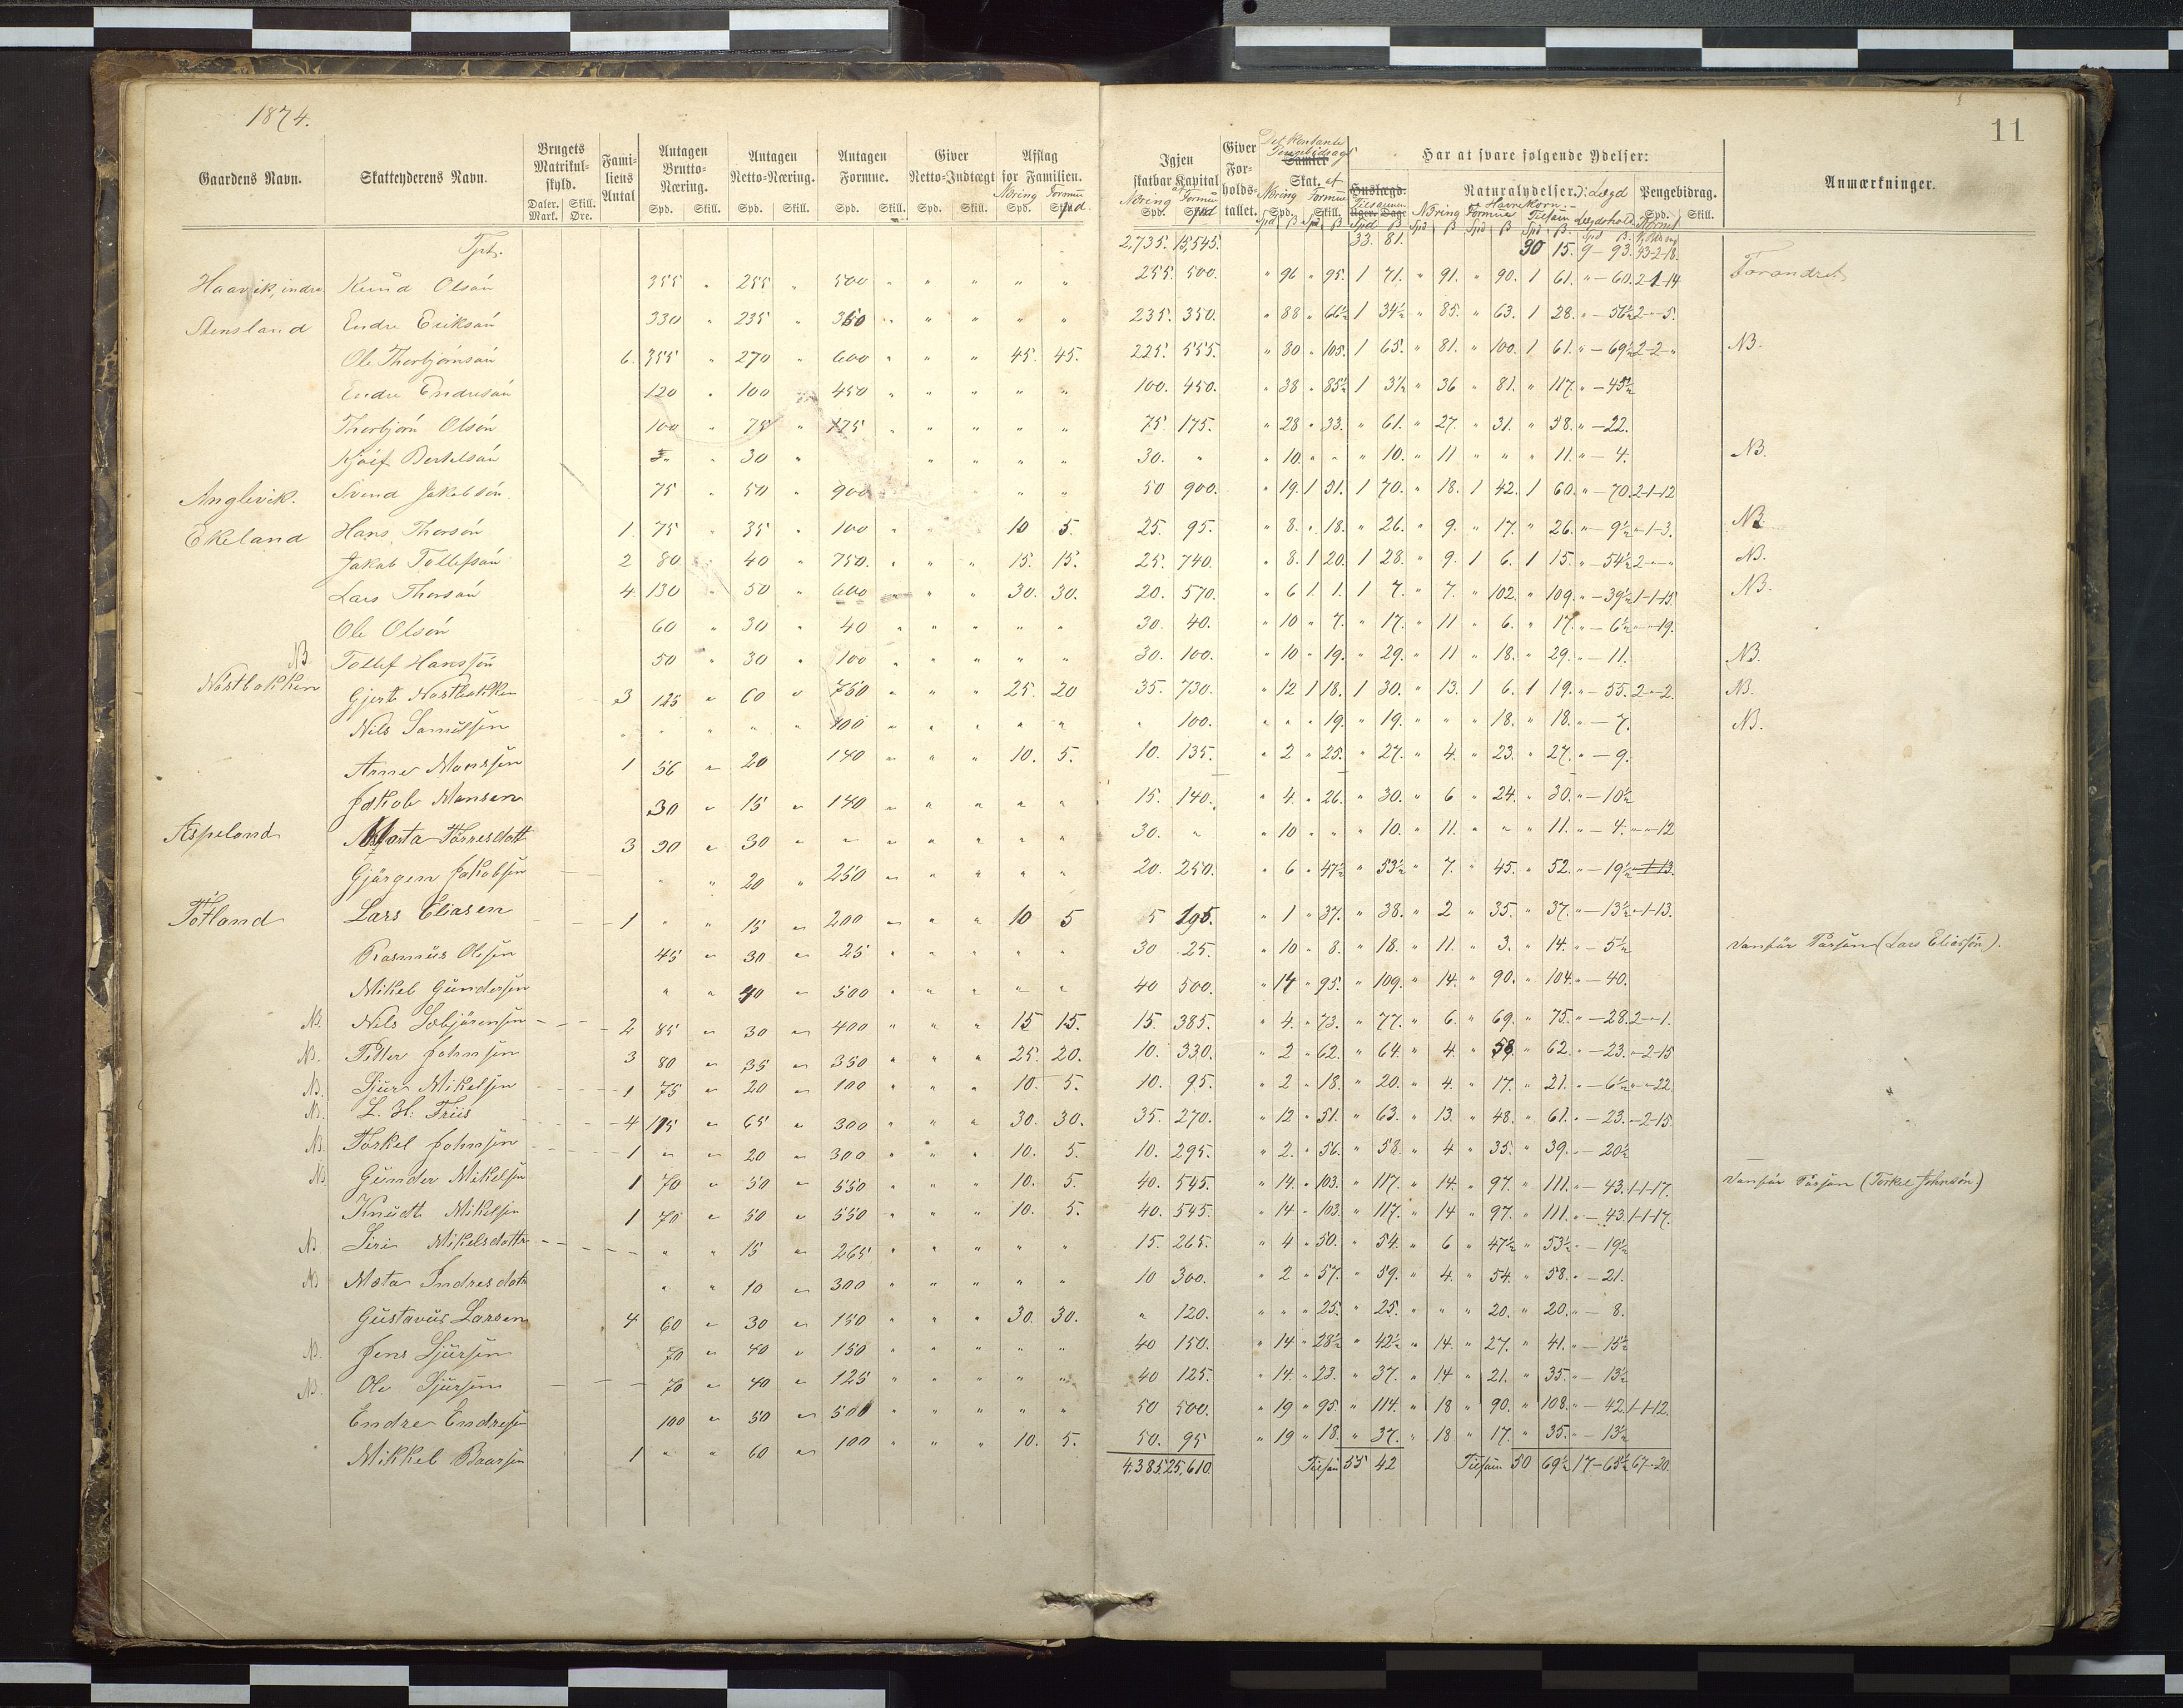 1874.
11
Gaardens Navn. Skatteyderens Navn. Brugets Matrikul-skyld. Daler. Mark. Skill. Øre. Fami-liens Antal Antagen Brutto-Næring. Spd. Skill. Antagen Netto-Næring. Spd. Skill. Antagen Formue. Spd. Skill. Giver Netto-Indtægt Spd. Skill. Afslag for Familien. Næring Formue Spd. Spd
Igjen skatbar Kapital af Næring Formue Spd. Spd Giver For-holds-tallet. Det Kontante Pengebidrag Skat. af Næring Formue Spd. Skill. Har at svare følgende Ydelser: Huslægd. Tilsammen Uger. Dage Naturalydelser. ɔ: Lægd Havrekorn. Næring Formue Tilsam Lægdshold Pengebidrag. Spd. Skill. Anmærkninger.
Tpt. 2,735. 15,545. 33. 81. 30 15. 9 - 93. 43-2-18.
Haavik, indre Knud Olsøn 355 " 255 " 500 " " " " " 255. 500. " 96 " 95. 1 71. " 91. " 90. 1 61. " - 60. 2-1-14 Forandret
Stensland Endre Eriksøn 330 " 235 " 350 " " " " " 235. 350. " 88 " 66½ 1 34½ " 85. " 63. 1 28. " - 56½ 2-"-5.
Ole Thorbjørnsøn 6. 355 " 270 " 600 " " " 45. 45. 225. 555. " 80 " 105. 1 65. " 81. " 100. 1 61. " - 69½ 2-2-" NB.
Endre Endresøn 120 " 100 " 450 " " " " " 100. 450. " 38 " 85½ 1 3½ " 36 " 81. " 117. " - 45½
Thorbjørn Olsøn 100 " 75 " 175 " " " " " 75. 175. " 28 " 33. " 61. " 27. " 31. " 58. " - 22.
Bertelsøn 30 " " " " " 30. " " 10. " " " 10. " 11 " " " 11. " - 4. NB.
Anglevik. Svend Jakobsøn 75 " 50 " 900 " " 50 900. " 19. 1 51. 1 70. " 18. 1 42. 1 60. " - 70. 2-1-12
Ekeland Hans Thorsøn 1. 75 " 35 " 100 " " " 10 5. 25. 95. " 8. " 18. " 26. " 9. " 17. " 26. " - 9½ "-1-3. NB
Jakob Tollefsøn 2 80 " 40 " 750. " " " 15. 15. 25. 740. " 8. 1 20. 1 28. " 9. 1 6. 1 15. " - 54½ 2-"-" NB.
Lars Thorsøn 4. 130 " 50 " 600 " " " 30. 30. 20. 570. " 6 1 1. 1 7. " 7. " 102. " 109. " - 39½ 1-1-15 NB.
Ole Olsøn 60 " 30 " 40 " " " " " 30. 40. " 10 " 7. " 17. " 11 " 6. " 17. " - 6½ "-"-19.
NB. Tollef Hanssøn 50 " 30 " 100 " " " " " 30. 100. " 10 " 19. " 29. " 11 " 18. " 29. " - 11. NB.
Nøstbakken Gjert Nøstbakken 3 125 " 60 " 750 " " " 25. 20 35. 730. " 12 1 18. 1 30. " 13. 1 6. 1 19. " - 55. 2-"-2. NB.
Nils Samuelsen " " " " " 100 " " " " " " 100. " " " 19. " 19. " " " 18. " 18. " - 7. NB.
Arne Monssen 1 56 " 20 140 " " " 10. 5. 10. 135. " 2 " 25. " 27. " 4. " 23. " 27. " - 9.
Jakob Monsen 30 " 15 " 140 " " " " " 15. 140. " 4. " 26. " 30. " 6 " 24. " 30. " - 10½
Aspeland Marta Tørresdatt 3 90 " 30 " " " " " " " 30. " " 10 " " " 10. " 11. " " " 11. " - 4. "-"-12
Gjørgen Jakobsen " " 20 " 250 " " " " " 20. 250. " 6 " 47½ " 53½ " 7. " 45. " 52. " - 19½ "-1-13.
Totland Lars Eliasen 1 " " 15 " 200 " " " 10. 5 5 195. " 1 " 37. " 38. " 2 " 35. " 37. " - 13½ "-1-13.
Rasmus Olsen 45 " 30 " 25 " " " " " 30 25. " 10 " 8. " 18. " 11. " 3. " 14. " - 5½ vanfør Person (Lars Eliassøn).
Mikel Gundersen " " 40 " 500 " " " " " 40 500. " 14 " 95. " 109. " 14. " 90. " 104. " - 40.
NB. Nils 2 85 " 30 " 400 " " " 15 15. 15. 385. " 4. " 73. " 77. " 6. " 69. " 75. " - 28. 2-"-1.
NB. Petter Johnsen 3 80 " 35 " 350 " " " 25. 20. 10. 330. " 2 " 62. " 64. " 4. " 58. " 62. " - 23. "-2-15
NB. Sjur Mikelsen 1 75 " 20 " 100 " " " 10. 5. 10. 95. " 2 " 18. " 20. " 4. " 17. " 21. " - 6½ "-"-22.
NB. L. H. Friis 4 115 " 65 " 300 " " " 30. 30. 35. 270. " 12 " 51. " 63. " 13. " 48. " 61. " - 23. "-2-15
NB. Torkel Johnsen 1 " " 20 " 300 " " " 10. 5. 10. 295. " 2. " 56. " 58. " 4 " 35. " 39. " - 20½
NB. Gunder Mikelsen 1 70 " 50 " 550 " " " 10. 5. 40. 545. " 14. " 103. " 117. " 14. " 97. " 111. " - 43. 1-1-17. vanfør Person (Torkel Johnsøn)
Knudt Mikelsen 1 70 " 50 " 550 " " " 10. 5. 40. 545. " 14 " 103. " 117. " 14 " 97. " 111. " - 43. 1-1-17.
NB Siri Mikelsdatter " " 15 " 265 " " " " " 15. 265. " 4 " 50. " 54. " 6 " 47½ " 53½ " - 19½
NB Indresdatr " " 10 " 300 " " " " " 10 300. " 2 " 57. " 59. " 4. " 54. " 58. " - 21.
Gustavus Larsen 4 60 " 30 " 150 " " " 30. 30. " 120. " " " 25. " 25. " " " 20. " 20. " - 8.
NB. Jens Sjursen 70 " 40 " 150 " " " " " 40 150. " 14 " 28½ " 42½ " 14. " 27. " 41. " - 15½
NB. Ole Sjursen 70 " 40 " 125 " " " " " 40 125. " 14. " 23. " 37. " 14 " 21. " 35. " - 13½
Endre Endresen 100 " 50 " 500 " " " " " 50 500. " 19 " 95. " 114. " 18 " 90. " 108. " - 42. 1-1-12.
Mikkel Baarsen 1 " " 60 " 100 " " " 10. 5. 50. 95 " 19 " 18. " 37. " 18 " 17. " 35. " - 13½
4,385. 25,610. Tilsam 55 42 Tilsam 50 69½ 17-65½ 67-"-20.